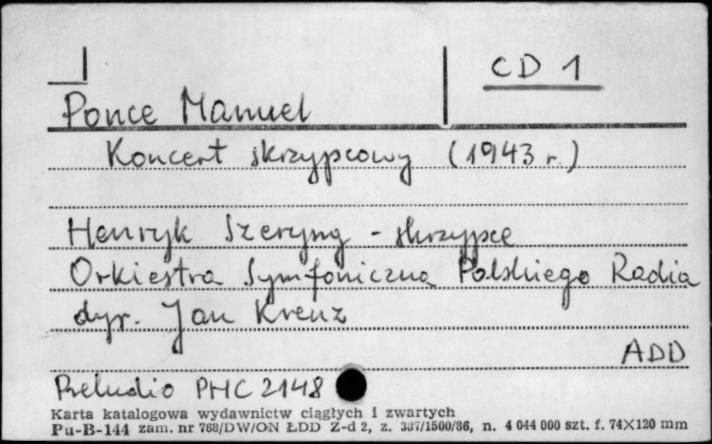 CD 1
Ponce Manuel
Koncert skrzypcowy (1943 r.)
Henryk Szeryng - skrzypce
Orkiestra Symfoniczna Polskiego Radia
dyr. Jan Krenz
ADD
Preludio PHC 2148
Karta katalogowa wydawnictw ciągłych i zwartych
Pu-B-144 zam. nr 768/DW/ON ŁDD Z-d 2, z. 337/1500/86, n. 4 044 000 szt. f. 74×120 mm